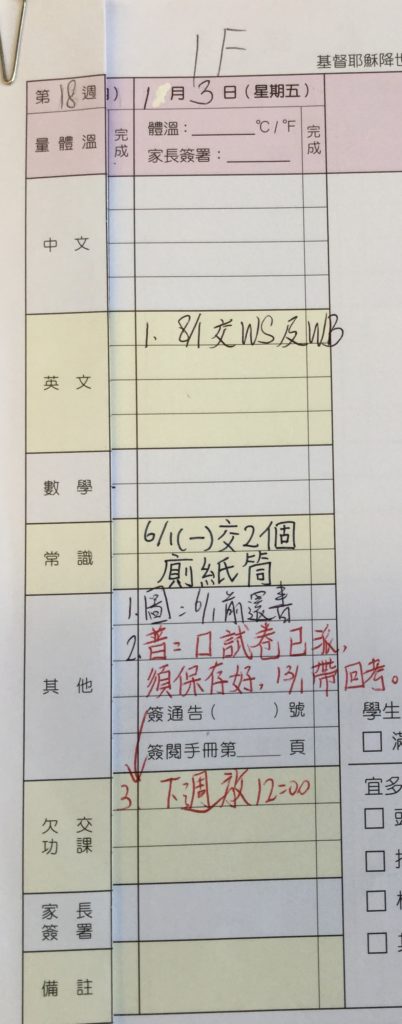 1F
基督耶穌降世
第18週 1月3日(星期五)
量體溫 完成 體溫:______°C/°F 完成
家長簽署:______
中文
英文 1. 8/1 交WS及WB
數學
常識 6/1(一)交2個
廁紙筒
其他 1. 圖:6/1前還書
2. 普:口試卷已派,
須保存好,13/1帶回考。
簽通告( )號
簽閱手冊第____頁
欠交功課 3. 下週放12:00
家長簽署
備註
學生
宜多